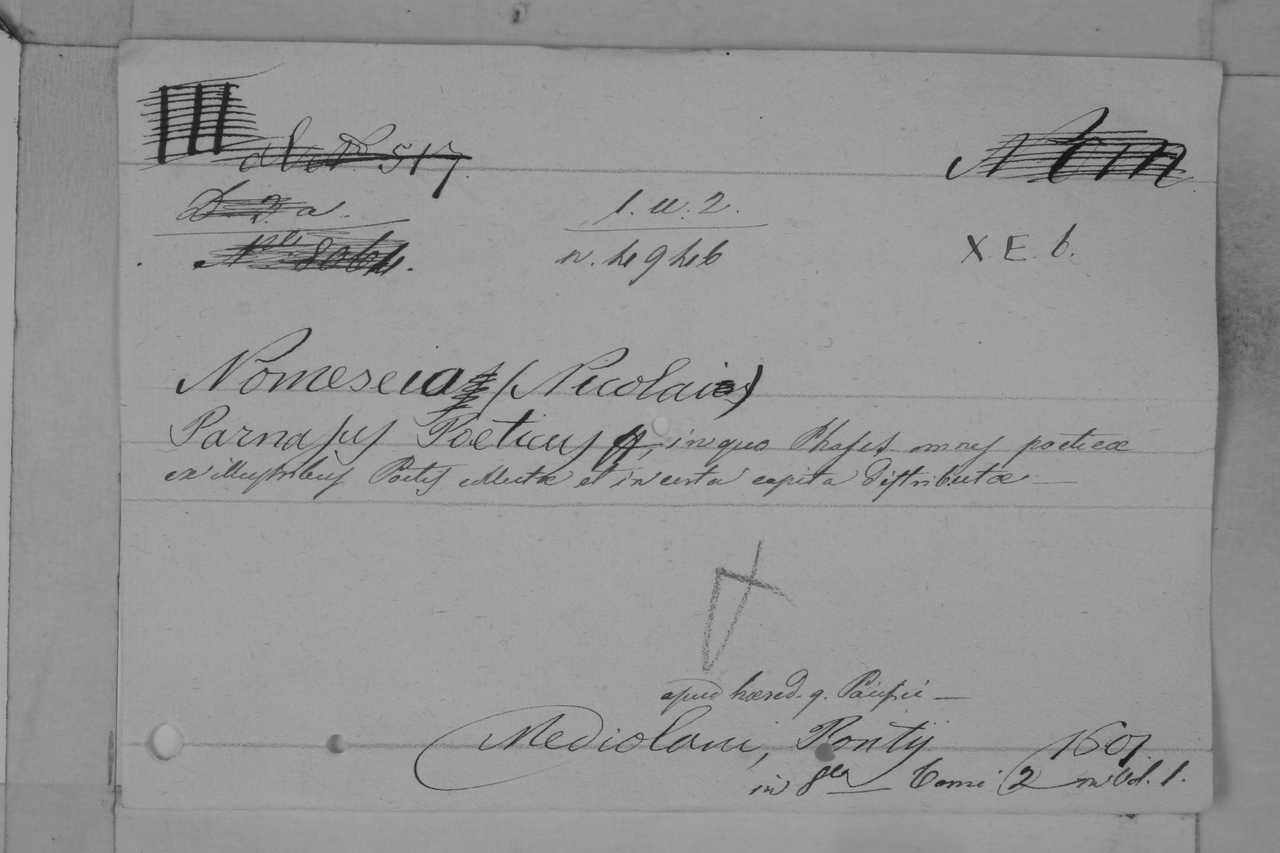 517.
l. u. 2.
X. E. 6.
Nomeseia (Nicolai)
Parnassus Poeticus, in quo Phrases omnes poeticæ
ex illustribus Poetis collectæ et in certa capita distributæ —
apud hæred. q. Pacifici —
Mediolani, Pontij 1601
in 8.va Tomi 2 in Vol. 1.